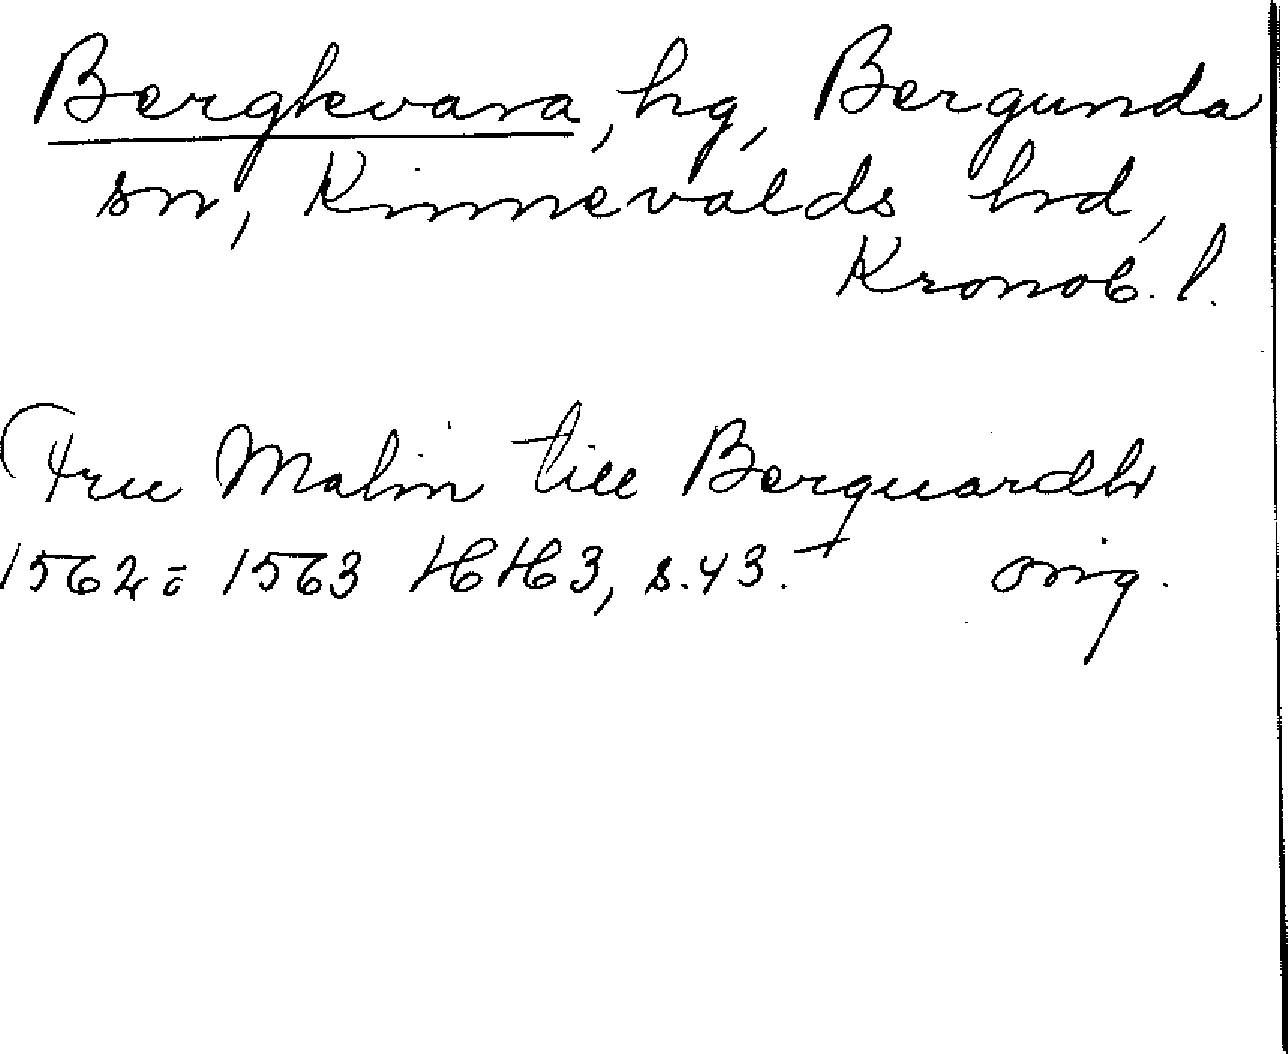 Bergkvara, hg, Bergunda
sn, Kinnevalds hrd,
Kronob. l.
Fru Malin till Berquardh
1562 = 1563 HH 3, s. 43. orig.